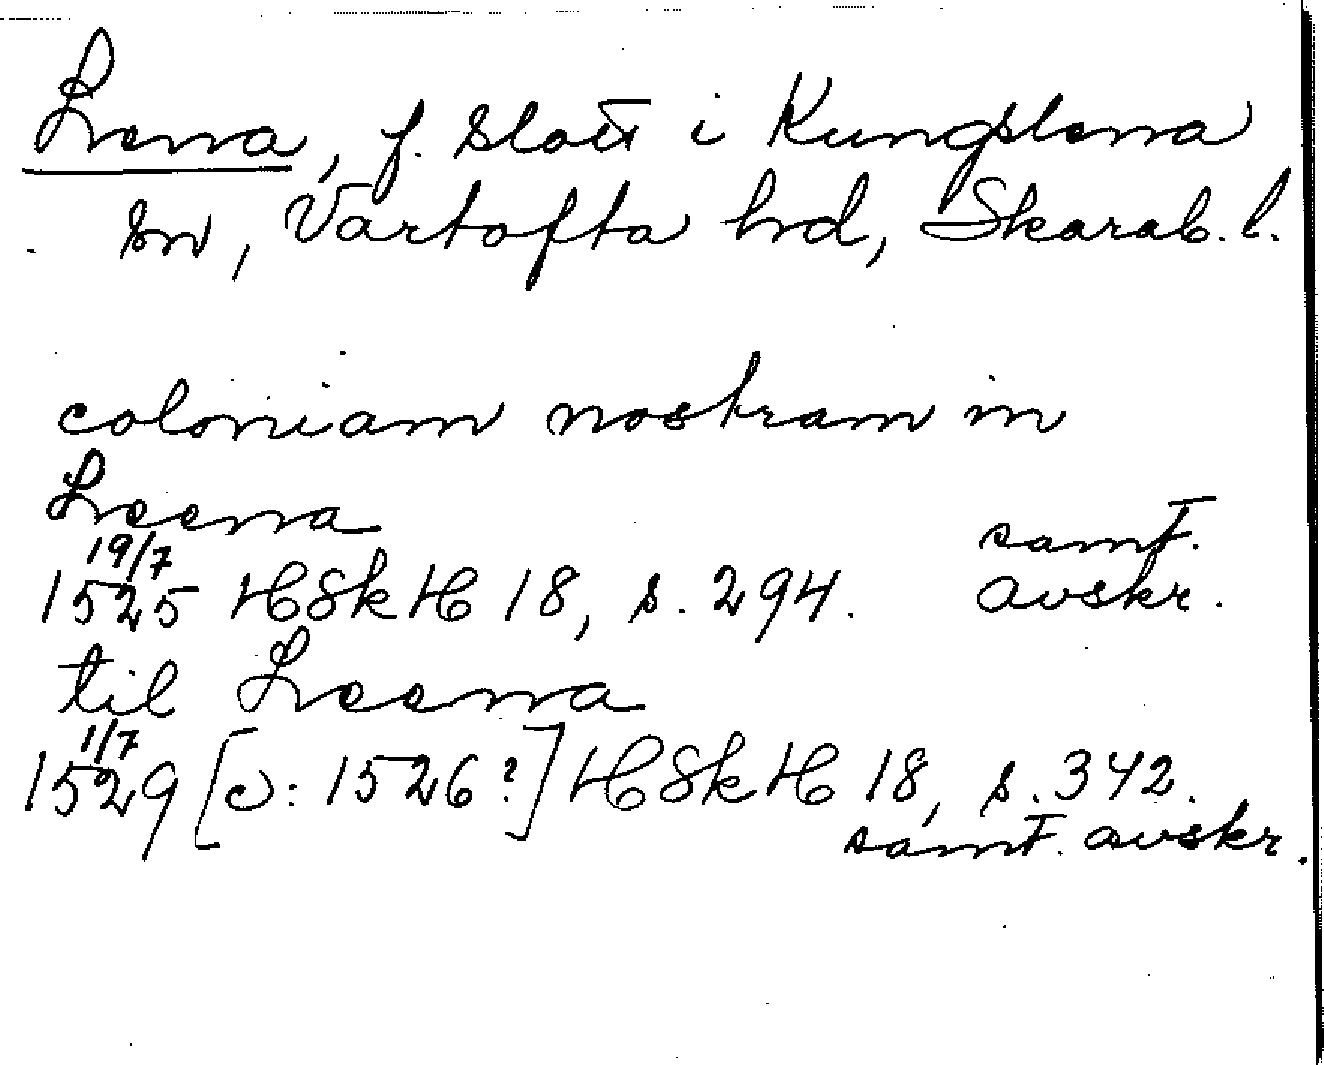 Lena, f. slott i Kungslena
sn, Vartofta hd, Skarab. l.
coloniam nostram in
Leena
19/7 samt.
1525 HSkH 18, s. 294. avskr.
til Leena
1/7
1529 [ɔ: 1526?] HSkH 18, s. 342.
samt. avskr.